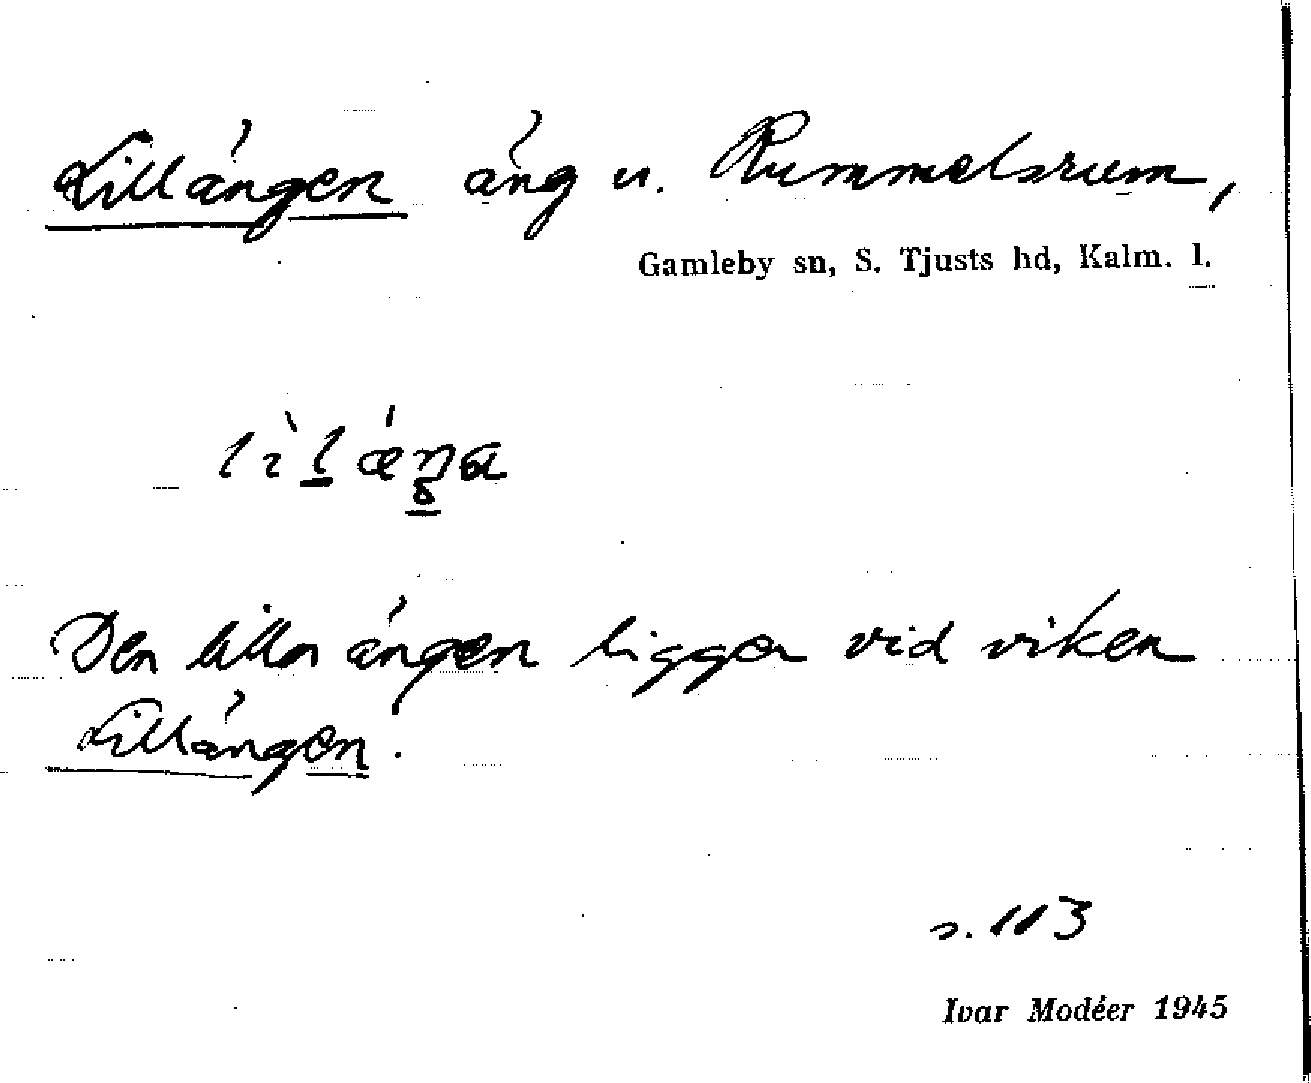 Lillängen äng u. Rummelsrum,
Gamleby sn, S. Tjusts hd, Kalm. l.
Den lilla ängen ligger vid viken
Lillängen.
s. 113
Ivar Modéer 1945